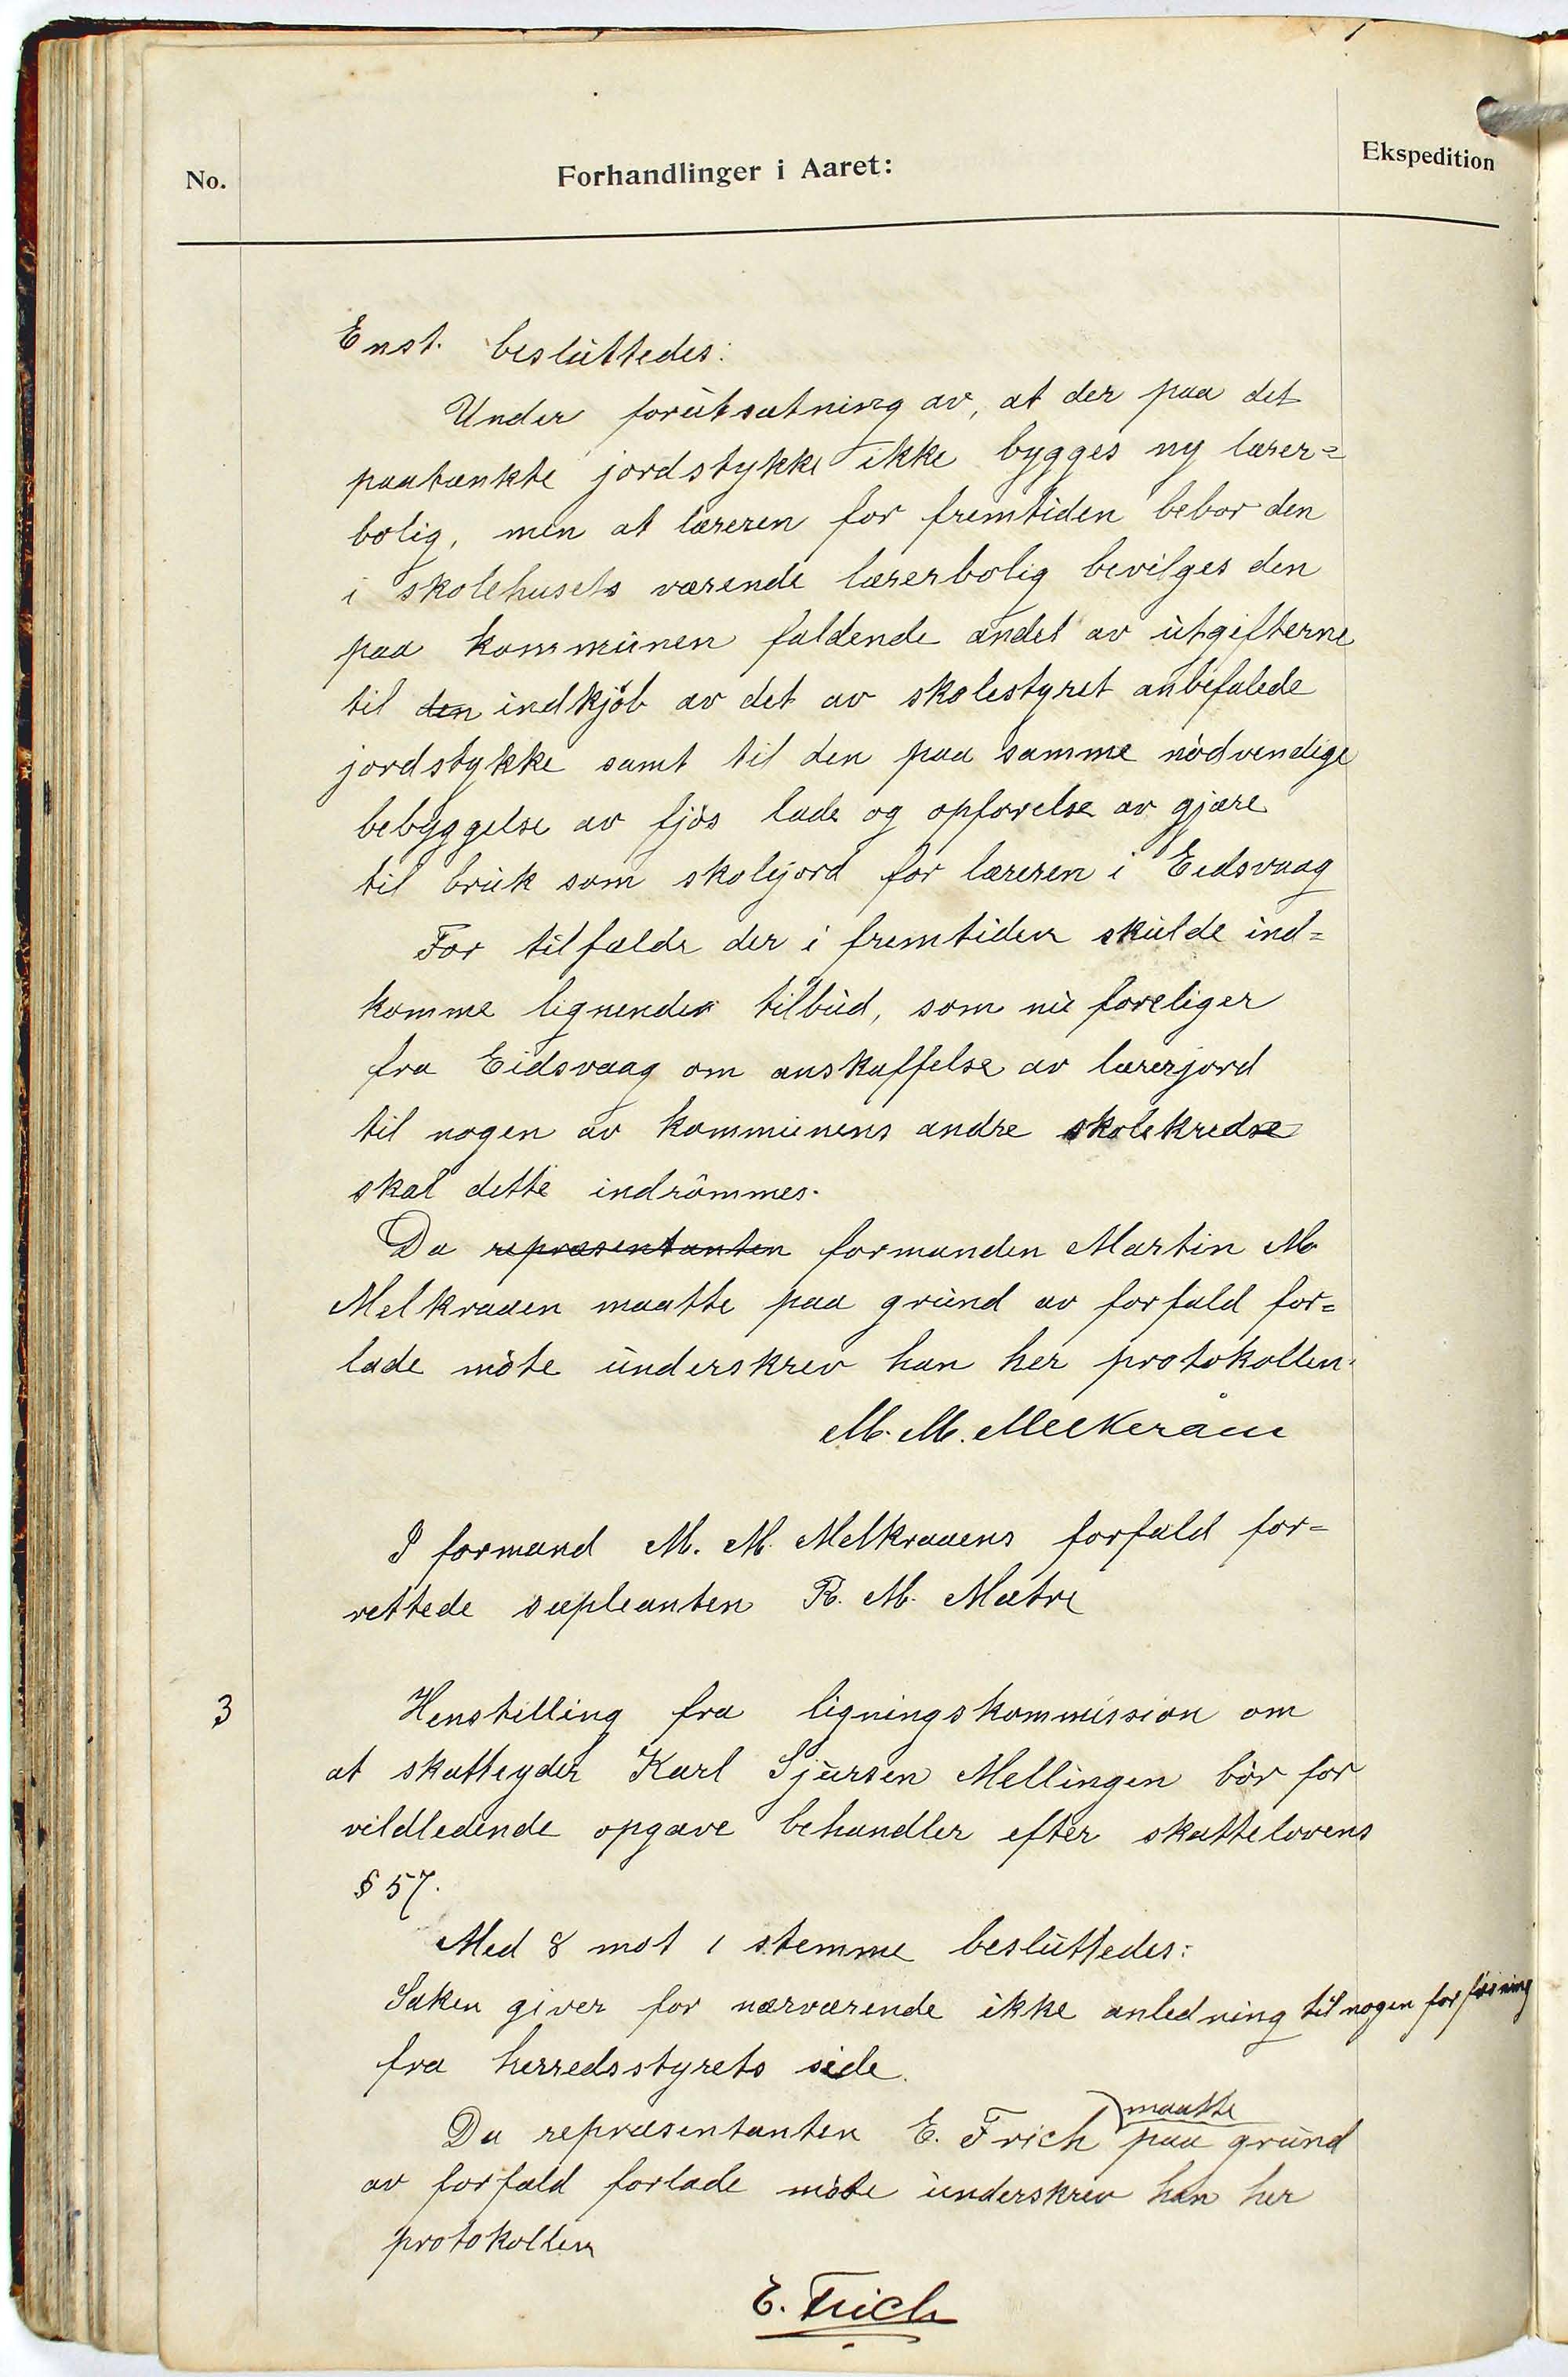 No.
Forhandlinger i Aaret:
Ekspedition
Enst. besluttedes:
Under forutsætning av, at der paa det
paatænkte jordstykke ikke bygges ny lærer=
bolig, men at læreren for fremtiden bebor den
i skolehusets værende lærerbolig bevilges den
paa kommunen faldende andel av utgifterne
til den indkjöb av det av skolestyret anbefalede
jordstykke samt til den paa samme nödvendige
bebyggelse av fjös lade og opförelse av gjære
til bruk som skolejord for læreren i Eidsvaag
For tilfælde der i fremtiden skulde ind=
komme lignende tilbud, som nu foreliger
fra Eidsvaag om anskaffelse av lærerjord
til nogen av kommunens andre skolekredse
skal dette indrömmes.
Da repræsentanten formanden Martin M
Melkraaen maatte paa grund av forfald for=
lade möte underskrev han her protokollen.
M. M. Melkeråen
I formand M. M. Melkraaens forfald for=
rettede supleanten R. M. Matre
3
Henstilling fra ligningskommission om
at skatteyder Karl Sjursen Mellingen bör for
vildledende opgave behandler efter skattelovens
§ 57.
Med 8 mot 1 stemme besluttedes:
Saken giver for nærværende ikke anledning til nogen forföining
fra herredsstyrets side.
maatte
Da repræsentanten E. Frich paa grund
av forfald forlade möte underskrev han her
protokollen
E. Frich